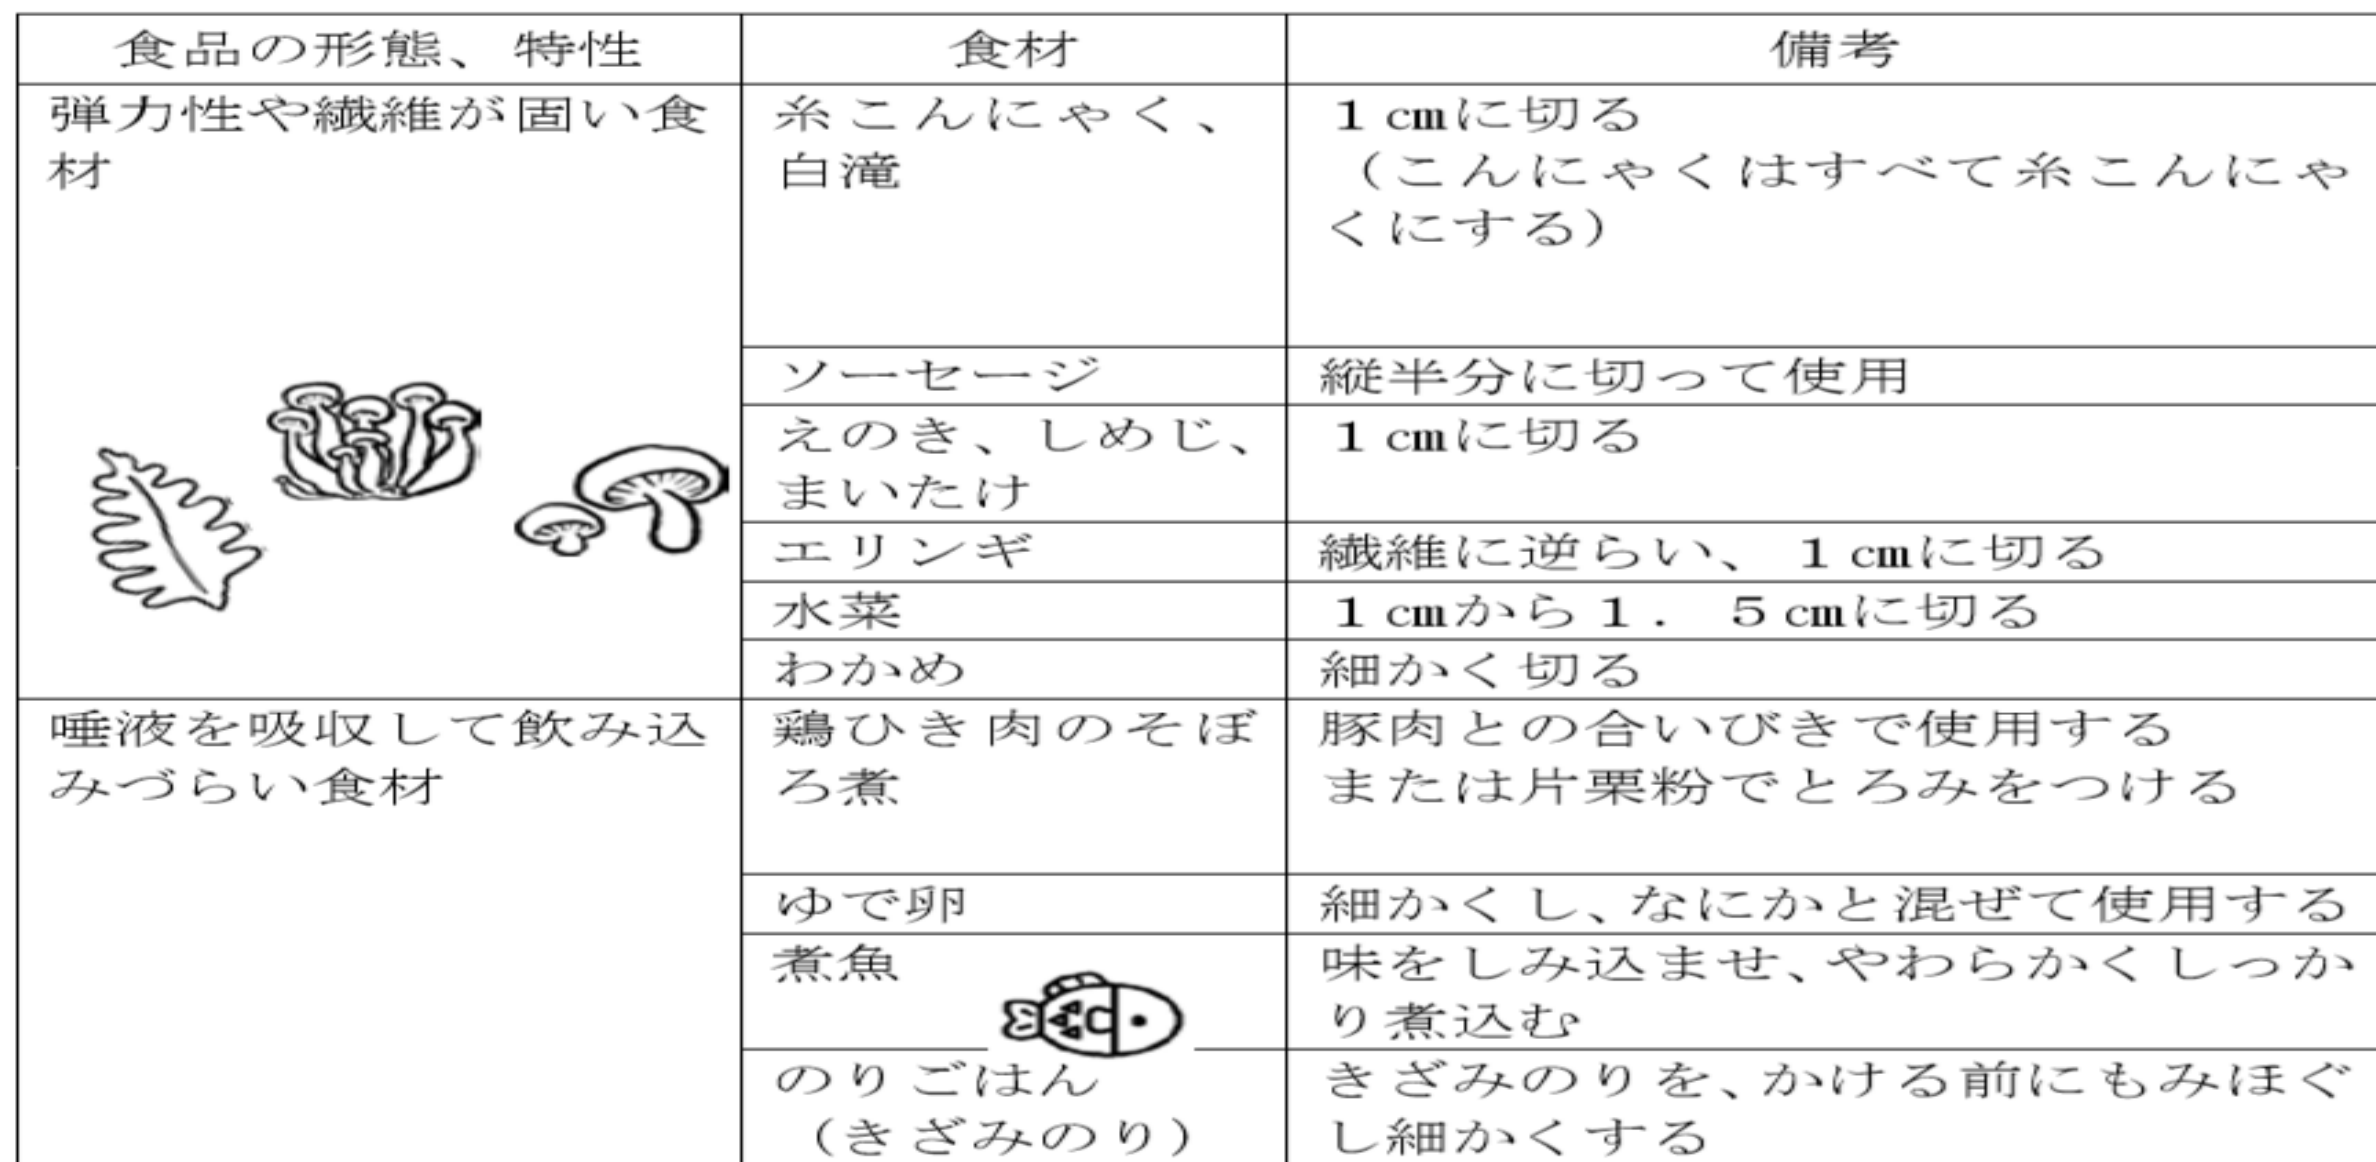 食品の形態、特性
食材
備考
弾力性や繊維が固い食
材
糸こんにゃく、
白滝
1cmに切る
（こんにゃくはすべて糸こんにゃ
くにする）
ソーセージ
縦半分に切って使用
えのき、しめじ、
まいたけ
1cmに切る
エリンギ
繊維に逆らい、1cmに切る
水菜
1cmから1．5cmに切る
わかめ
細かく切る
唾液を吸収して飲み込
みづらい食材
鶏ひき肉のそぼ
ろ煮
豚肉との合いびきで使用する
または片栗粉でとろみをつける
ゆで卵
細かくし、なにかと混ぜて使用する
煮魚
味をしみ込ませ、やわらかくしっか
り煮込む
のりごはん
（きざみのり）
きざみのりを、かける前にもみほぐ
し細かくする